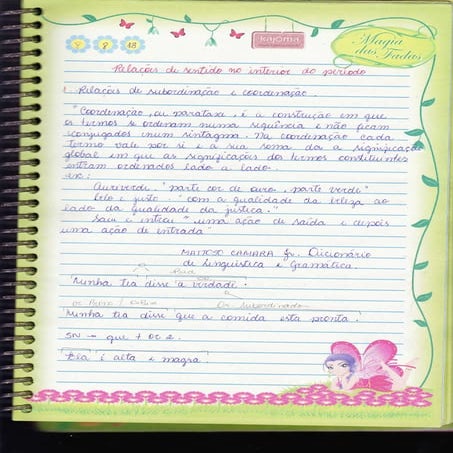 9 8 13
kajoma
Magia
das Fadas
Relações de sentido no interior do período
1. Relações de subordinação e coordenação.
"Coordenação, ou parataxe, é a construção em que
os termos se ordenam numa sequência e não ficam
conjugados num sintagma. Na coordenação cada
termo vale por si e a sua soma dá a significação
global em que as significações dos termos constituintes
entram ordenados lado a lado.
ex:
Auriverde, "parte cor de ouro, parte verde"
belo e justo: "com a qualidade da beleza ao
lado da qualidade da justiça."
saiu e entrou "uma ação de saída e depois
uma ação de entrada"
MATTOSO CAMARA Jr. Dicionário
de Linguística e Gramática.
Minha tia disse a verdade.
Or. Subordinada
Minha tia disse que a comida está pronta.
SN → que + or 2.
Ela é alta e magra.